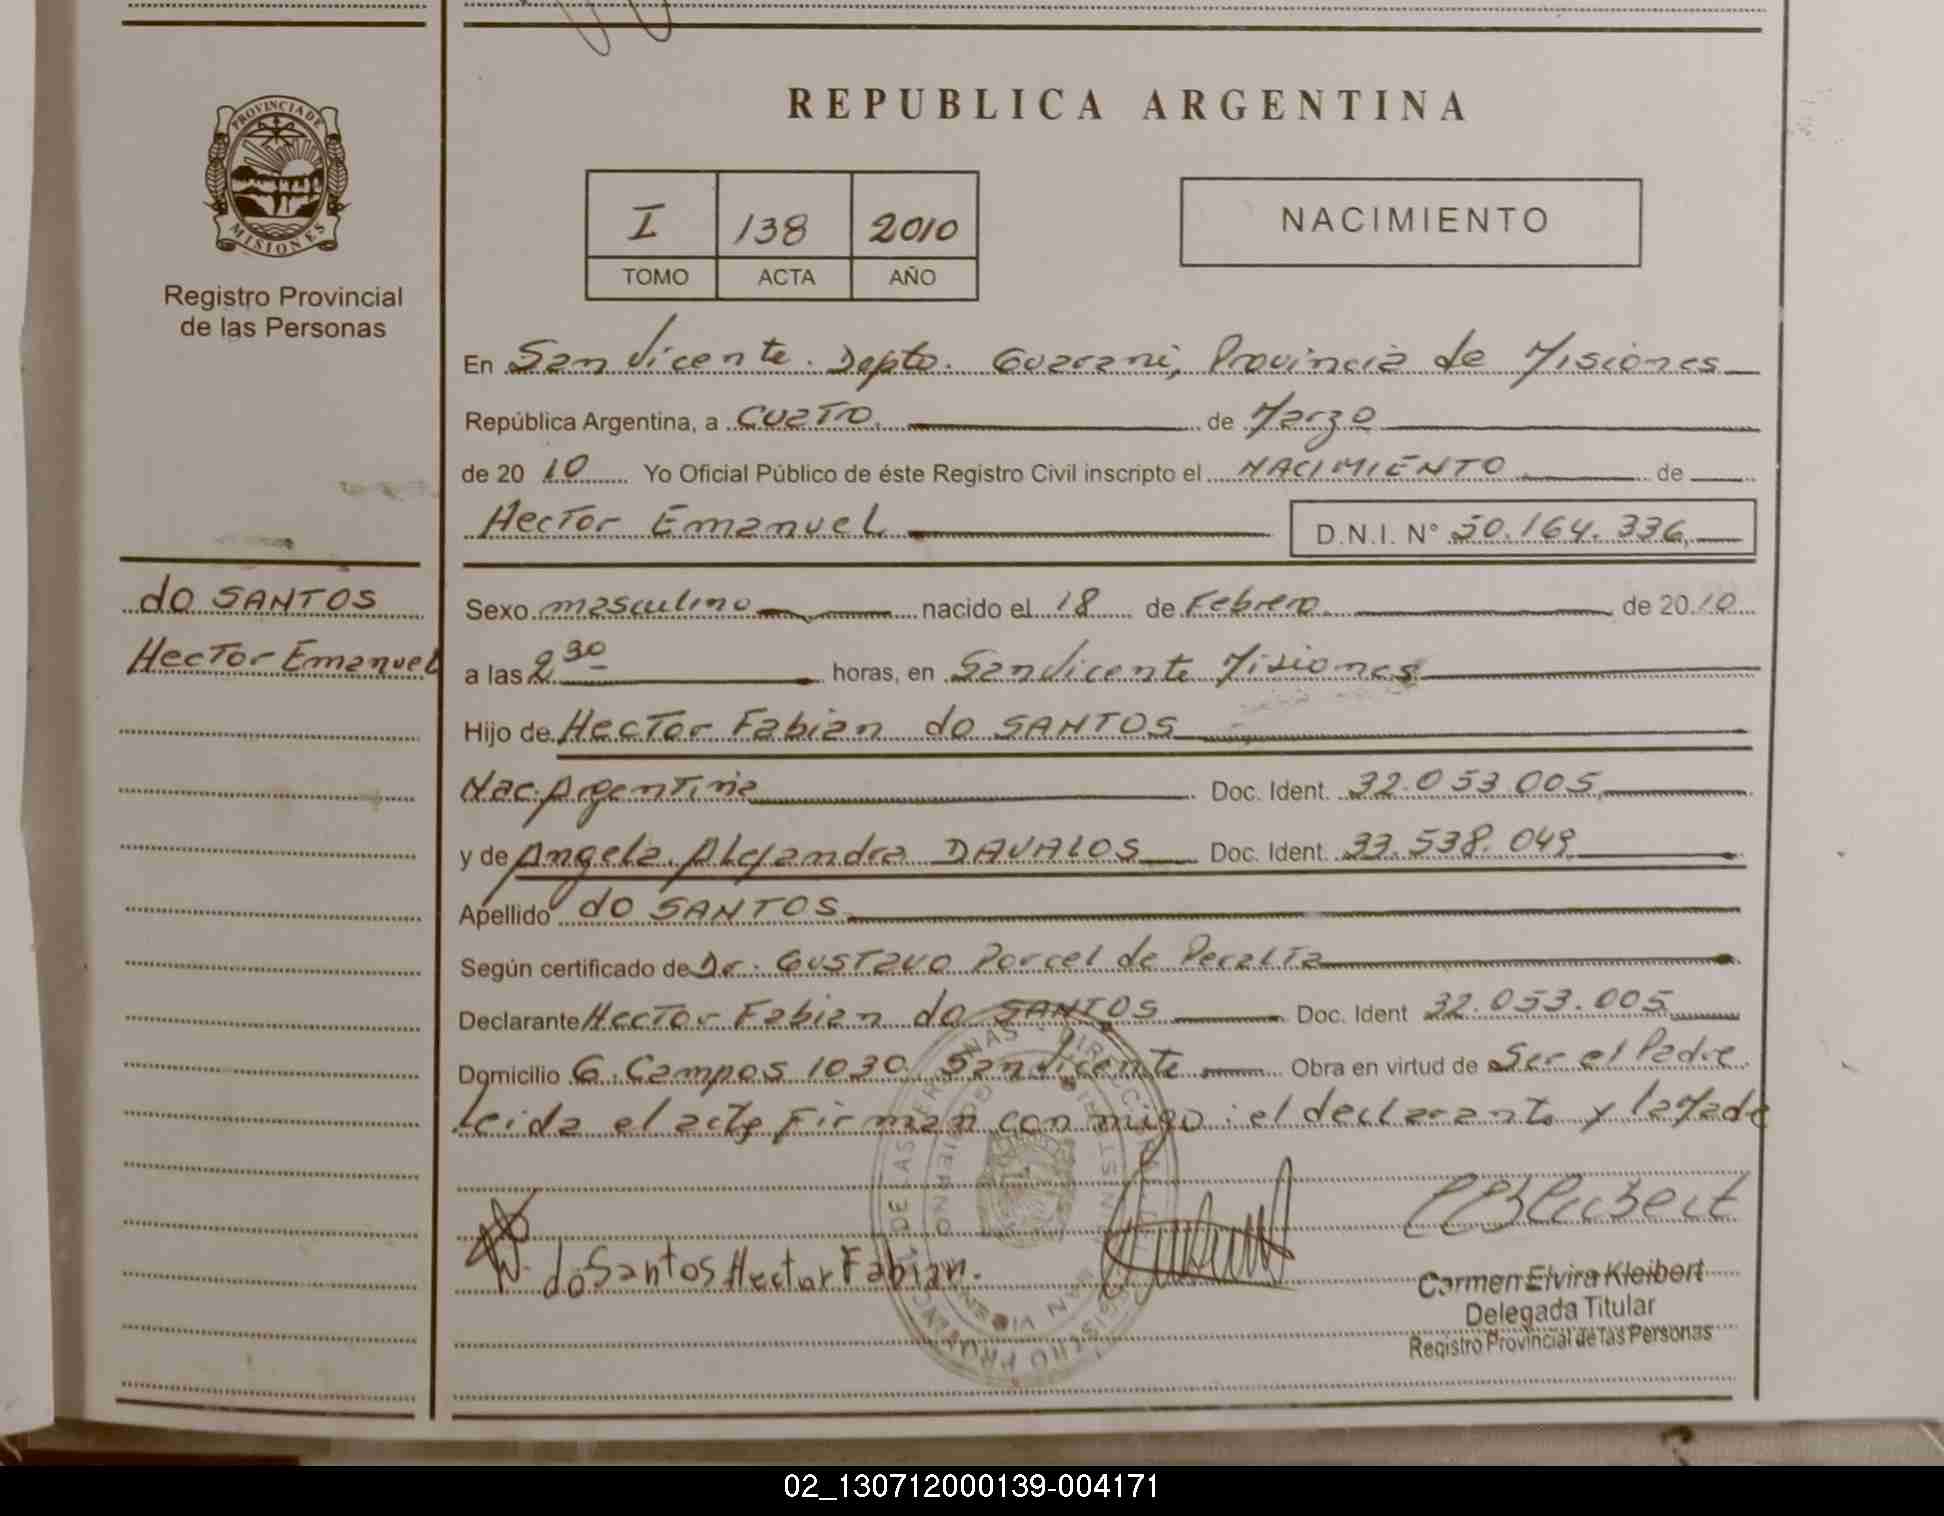 PROVINCIA DE
MISIONES
Registro Provincial
de las Personas
do SANTOS
Hector Emanuel
REPUBLICA ARGENTINA
I 138 2010
TOMO ACTA AÑO
NACIMIENTO
En San Vicente. Depto. Guarani, Provincia de Misiones
República Argentina, a cuatro de Marzo
de 20 10 Yo Oficial Público de éste Registro Civil inscripto el NACIMIENTO de
Hector Emanuel D.N.I. N° 50.164.336
Sexo masculino nacido el 18 de Febrero de 20 10
a las 2 30 horas, en San Vicente Misiones
Hijo de Hector Fabian do SANTOS
Nac. Argentina Doc. Ident. 32.053.005
y de Angela Alejandra DAVALOS Doc. Ident. 33.538.049
Apellido do SANTOS
Según certificado de Dr. Gustavo Porcel de Peralta
Declarante Hector Fabian do SANTOS Doc. Ident 32.053.005
Domicilio G. Campos 1030 San Vicente Obra en virtud de Ser el Padre
Leida el acta Firman con migo: el declarante y la Made
do Santos Hector Fabian.
Carmen Elvira Kleibert
Delegada Titular
Registro Provincial de las Personas
02_130712000139-004171